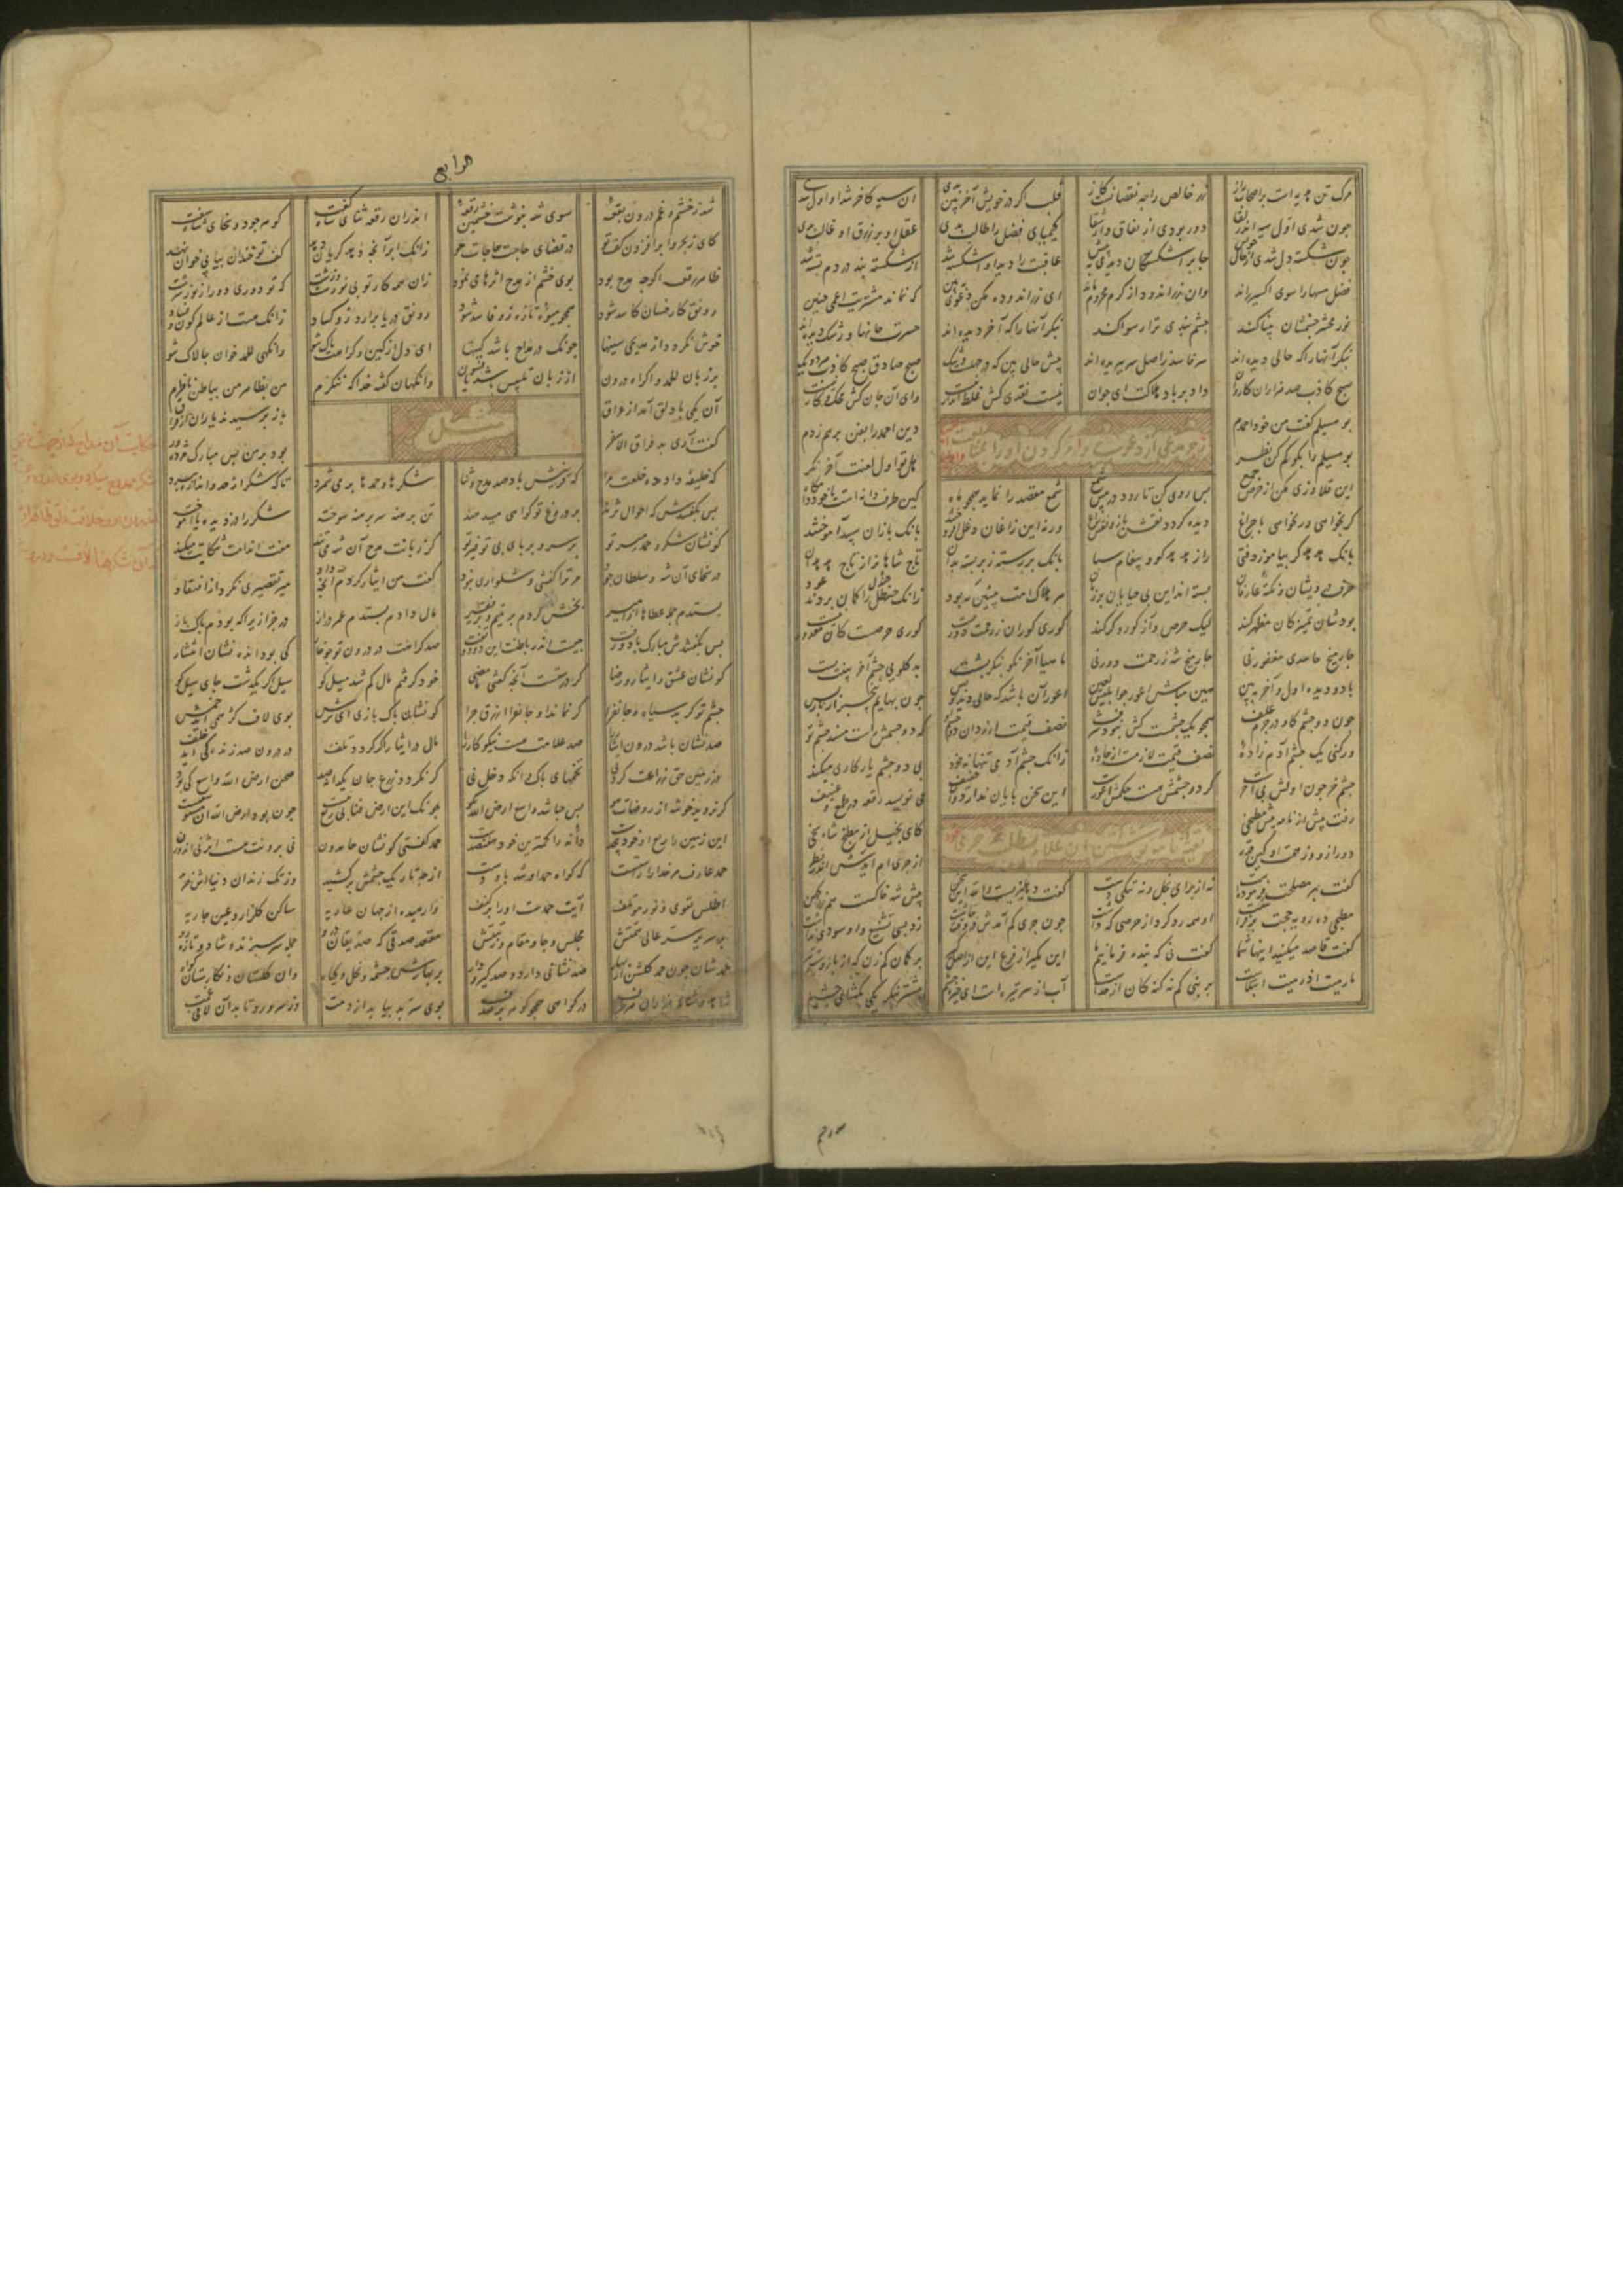 مرک تن هدیه است بر اصحاب راز زر خالص را جه نقصانست کاز قلب اکر در خویش آخربین بدی ان سیه کاخر شد او اول شدی
جون شدی اول سیه اندر لقا دور بودی از نفاق و از شقا کیمیای فضل را طالب بدی عقل او بر زرق او غالب بدی
جون شکسته دل شدی از حال خویش جابر اشکستکان دیدی به پیش عاقبت را دید و او اشکسته شد از شکسته بند در دم بسته شد
فضل مسها را سوی اکسیر راند وان زراندود از کرم محروم ماند ای زراندوده مکن دعوی ببین که نماند مشتریت اعمی جنین
نور محشر جشمشان بینا کند جشم بندی ترا رسوا کند بنکر آنها را که آخر دیده اند حسرت جانها و رشک دیده اند
بنکر آنها را که حالی دیده اند سر فاسد ز اصل سر ببریده اند پیش حالی بین که در جهلست و شک صبح صادق صبح کاذب هر دو یک
صبح کاذب صد هزاران کاروان داد بر باد هلاکت ای جوان نیست نقدی کش غلط انداز نیست وای آن جان کش محک و کاز نیست
زجر مدعی از دعوی وامر کردن او را بمتابعت
بو مسیلم کفت من خود احمدم دین احمد را بفن برهم زدم
بو مسیلم را بکو کم کن اول آخر نکر
این قلاوزی مکن از حرص جمع بس روی کن تا رود در پیش شمع شمع مقصد را نماید همجو ماه کین طرف دانه است یا خود دامکاه
کر بخواهی ور نخواهی با جراغ دیده کردد نقش باز و نقش زاغ ورنه این زاغان دغل افروختند بانک بازان سپید آموختند
بانک هدهد کر بیاموزد فتی راز هدهد کو و پیغام سبا بانک بررسته ز بربسته بدان تاج شاهان را ز تاج هدهدان
حرف درویشان و نکته عارفان بسته اند این بی حیایان بر زبان هر هلاک امت پیشین که بود زانک جندل را کمان بردند عود
بودشان تمییز کان مظهر کند لیک حرص و آز کور و کر کند کوری کوران ز رحمت دور نیست کوری حرصست کان معذور نیست
جارمیخ حاسدی مغفور نی جارمیخ شه ز رحمت دور نی ماهیا آخر نکر بنکر بشست بد کلویی جشم آخر بینت بست
با دو دیده اول و آخر ببین هین مباش اعور جو ابلیس لعین اعور آن باشد که حالی دید و بس جون بهایم بی خبر از باز پس
جون دو جشم کاو در جرم تلف همجو یک جشمست کش نبود شرف نصف قیمت ارزد آن دو جشم او که دو جشمش راست مسند جشم تو
ور کنی یک جشم آدم زاده نصف قیمت لازمست از جاده زانک جشم آدمی تنها به خود بی دو جشم یار کاری میکند
جشم خر جون اولش بی آخرست کر دو جشمش هست حکمش اعورست این سخن پایان ندارد وان خفیف می نویسد رقعه در طمع رغیف
بقیه نوشتن آن غلام رقعه بطلب جری
رفت پیش از نامه پیش مطبخی کای بخیل از مطبخ شاه سخی
دور ازو وز همت او کین قدر از جری ام آیدش اندر نظر
کفت بهر مصلحت فرموده است نه از برای بخل و نه تنکی دست کفت دهلیزیست والله این سخن پیش شه خاکست هم زر کهن
مطبخی ده رویه حجت بر فراشت او همه رد کرد از حرصی که داشت جون جری کم آمدش در وقت جاشت زد بسی تشنیع و او سودی نداشت
کفت قاصد میکنید اینها شما کفت نی که بنده فرمانیم ما این مکیر از فرع این از اصل کیر بر کمان کم زن که از بازوست تیر
ما رمیت اذ رمیت ابتلاست بر نبی کم نه کنه کان از خداست آب از سر تیره است ای خیره خشم پیشتر بنکر یکی بکشای جشم
الرابع
شد ز خشم و غم درون بقعه سوی شه بنوشت خشمین رقعه اندران رقعه ثنای شاه کفت کوهر جود و سخای شاه سفت
کای ز بحر و ابر افزون کف تو در قضای حاجت حاجات جو زانک ابر آنج دهد کریان دهد کف تو خندان پیاپی خوان نهد
ظاهر رقعه اکرجه مدح بود بوی خشم از مدح اثرها می نمود زان همه کار تو بی نورست و زشت که تو دوری دور از نور سرشت
رونق کار خسان کاسد شود همجو میوه تازه زو فاسد شود رونق دنیا برارد زو کساد زانک هست از عالم کون و فساد
خوش نکردد از مدیحی سینها جونک در مداح باشد کینها ای دل از کین و کراهت پاک شو وانکهی الحمد خوان جالاک شو
بر زبان الحمد و اکراه درون از زبان تلبیس باشد یا فسون وانکهان کفته خدا که ننکرم من بظاهر من بباطن ناظرم
مثل
آن یکی با دلق آمد از عراق باز پرسیدند یاران از فراق
کفت آری بد فراق الا سفر بود بر من بس مبارک مژده ور
که خلیفه داد ده خلعت مرا که قرینش باد صد مدح و ثنا شکرها و حمدها بر می شمرد تا که شکر از حد و اندازه ببرد
بس بکفتندش که احوال نژند بر دروغ تو کواهی میدهند تن برهنه سر برهنه سوخته شکر را دزدیده یا آموخته
کو نشان شکر و حمد میر تو بر سر و بر پای بی توفیر تو کر زبانت مدح آن شه می تند هفت اندامت شکایت میکند
در سخای آن شه و سلطان جود مر ترا کفشی و شلواری نبود کفت من ایثار کردم آنج داد میر تقصیری نکرد از افتقاد
بستدم جمله عطاها از امیر بخش کردم بر یتیم و بر فقیر مال دادم بستدم عمر دراز در جزا زیرا که بودم پاک باز
بس بکفتندش مبارک مال رفت جیست اندر باطنت این دود تفت صد کراهت در درون تو جو خار کی بود انده نشان ابتشار
کو نشان عشق و ایثار و رضا کر درستست آنج کفتی ما مضی خود کرفتم مال کم شد میل کو سیل اکر بکذشت جای سیل کو
جشم تو کر بد سیاه و جانفزا کر نماند او جانفزا ازرق جرا کو نشان پاک بازی ای ترش بوی لاف کژ همی آید خمش
صد نشان باشد درون ایثار را صد علامت هست نیکوکار را مال در ایثار اکر کردد تلف در درون صد زندکی آید خلف
در زمین حق زراعت کردنی تخمهای پاک آنکه دخل نی کر نکردد زرع جان یک دانه صد صحن ارض الله واسع کی بود
کر نروید خوشه از روضات هو بس جه باشد واسع ارض الله بکو جونک این ارض فنا بی ریع نیست جون بود ارض الله آن مستوسعیست
این زمین را ریع او خود بی حدست دانه را کمترین خود هفصدست حمد کفتی کو نشان حامدون نی برونت هست اثر نی اندرون
حمد عارف مر خدا را راستست که کواه حمد او شد پا و دست از جه تاریک جسمش برکشید وز تک زندان دنیااش خرید
اطلس تقوی و نور مؤتلف آیت حمدست او را بر کتف وارهیده از جهان عاریه ساکن کلزار و عین جاریه
بر سریر سر عالی همتش مجلس و جا و مقام و رتبتش مقعد صدقی که صدیقان درو جمله سرسبزند و شاد و تازه رو
حمدشان جون حمد کلشن از بهار صد نشانی دارد و صد کیر و دار بر بهارش جشمه و نخل و کیاه وان کلستان و نکارستان کواه
شاهد شاهد هزاران هر طرف در کواهی همجو کوهر بر صدف بوی سر بد بیاید از دمت وز سر و رو تابد آن لاف غمت
حکایت آن مداح که از جهت ناموس
شکر ممدوح میکرد و بوی اندوه و غم
اندرون او و خلاقت دلق ظاهر او
کی آن شکرها لافست و دروغ